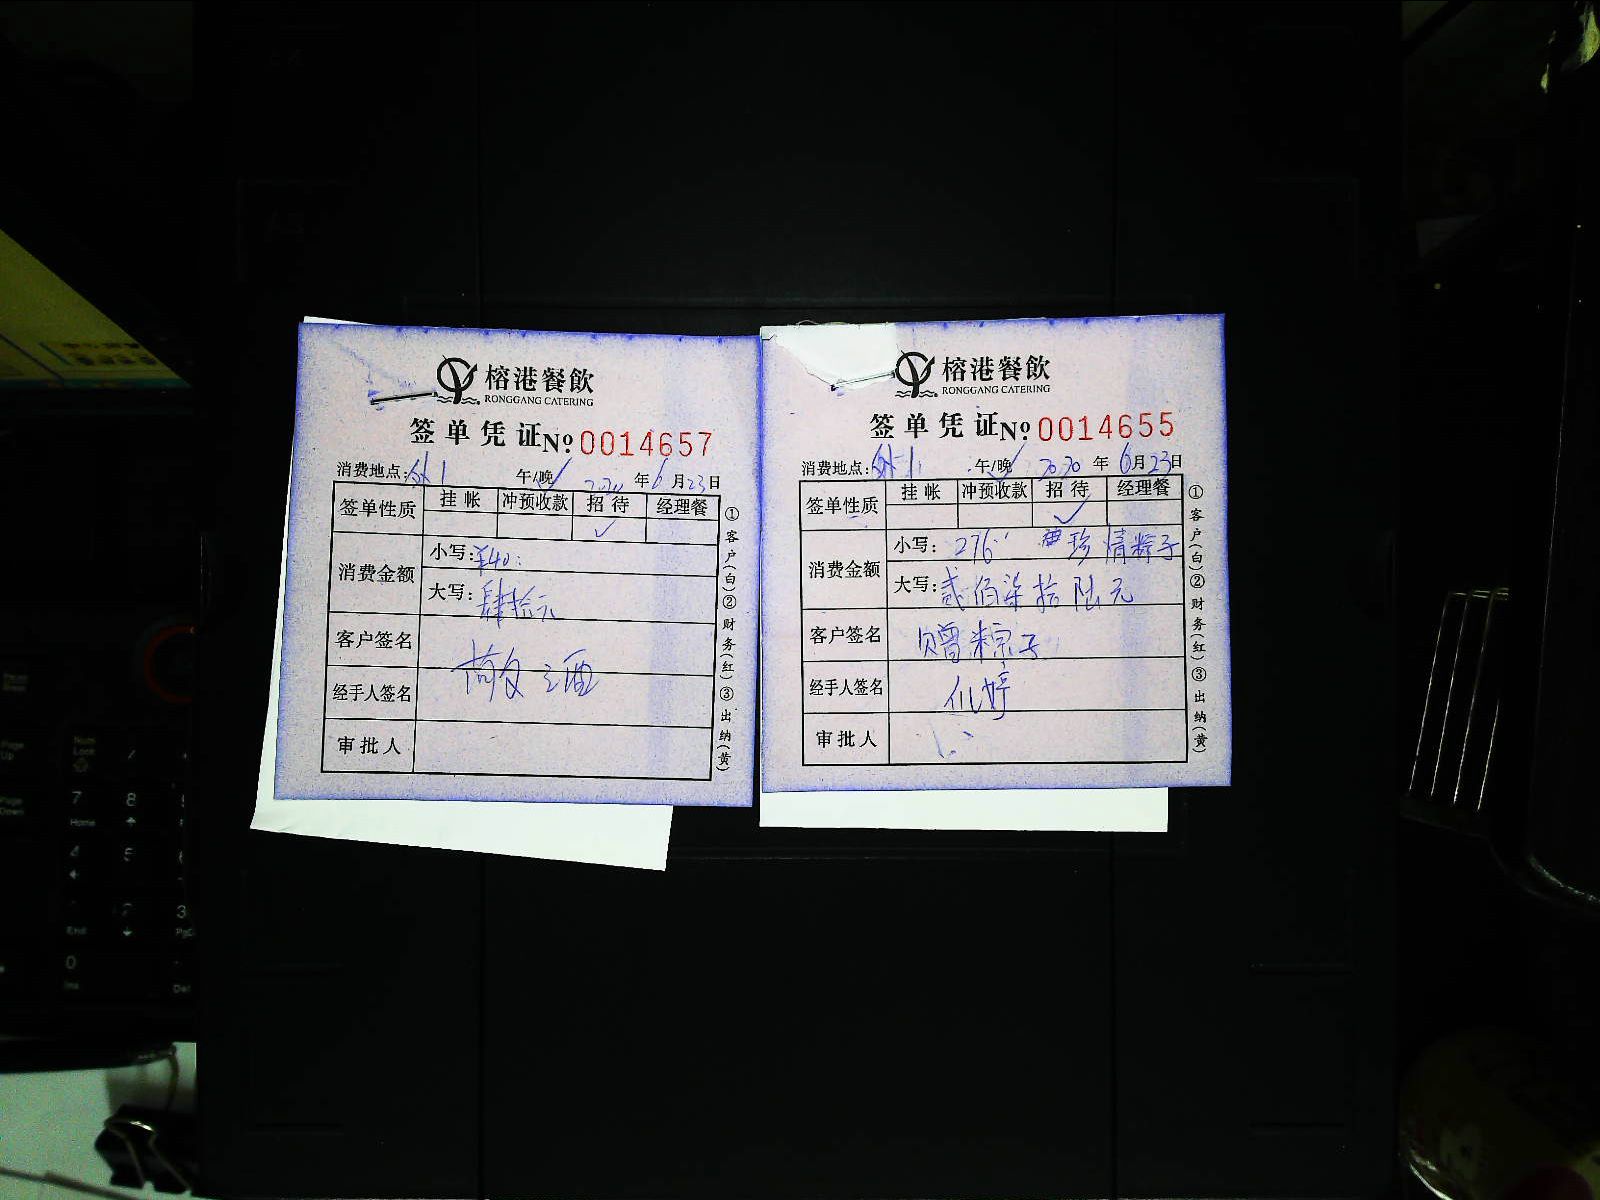 榕港餐飲
RONGGANG CATERING
签单凭证 №0014657
消费地点:外1 午/晚✓ 2020年6月23日
签单性质 挂帐 冲预收款 招待 经理餐
✓
消费金额 小写:¥40.
大写:肆拾元
客户签名
经手人签名
审批人
①客户(白)②财务(红)③出纳(黄)
榕港餐飲
RONGGANG CATERING
签单凭证 №0014655
消费地点:外1 午/晚✓ 2020年6月23日
签单性质 挂帐 冲预收款 招待 经理餐
✓
消费金额 小写:276 珍情粽子
大写:贰佰柒拾陆元
客户签名 赠粽子
经手人签名
审批人
①客户(白)②财务(红)③出纳(黄)
Num
Lock
Page
Up
Page
Down
7 8
Home
4 5
2 3
End
0
Ins Del